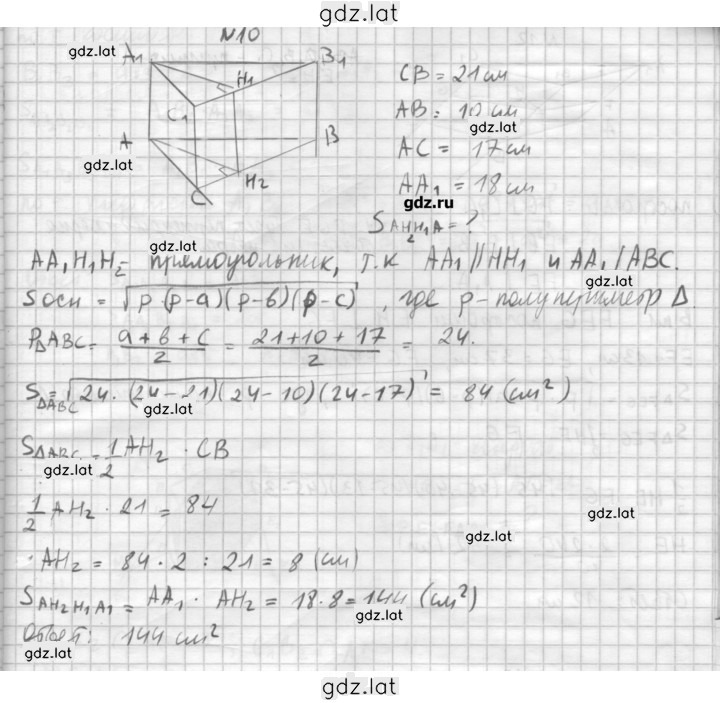 gdz.lat
N10
gdz.lat
A1 B1
H1
C1
A B
gdz.lat
H2
C
CB = 21 см
AB = 10 см
gdz.lat
AC = 17 см
AA1 = 18 см
gdz.ru
SAHH1A = ?
2
gdz.lat
AA1H1H2 = прямоугольник, т.к AA1 || HH1 и AA1 ⊥ ABC.
gdz.lat
Sосн = √p·(p-a)(p-b)(p-c), где p - полупериметр Δ.
PΔABC = a+b+c/2 = 21+10+17/2 = 24.
SΔABC = √24·(24-21)(24-10)(24-17) = 84 (см²)
gdz.lat
SΔABC = 1/2 AH2 · CB
gdz.lat
1/2 AH2 · 21 = 84
gdz.lat
gdz.lat
AH2 = 84 · 2 : 21 = 8 (см)
SAH2H1A1 = AA1 · AH2 = 18·8 = 144 (см²)
gdz.lat
Ответ: 144 см²
gdz.lat
gdz.lat